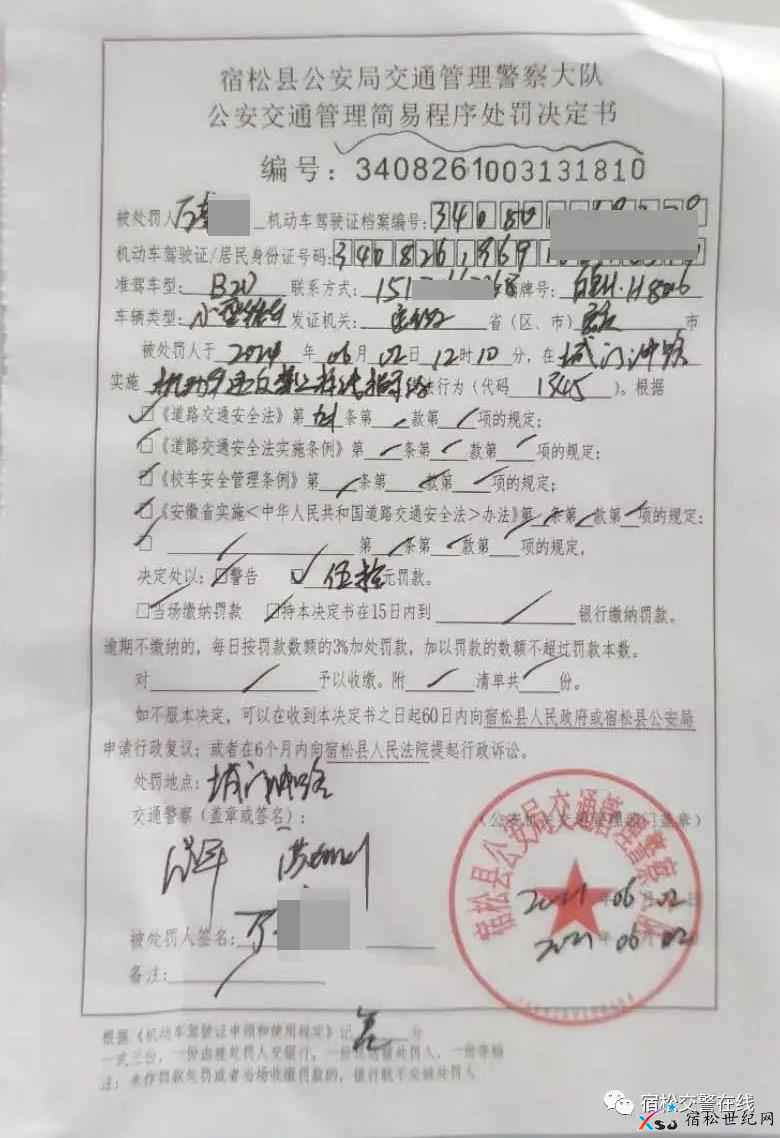 宿松县公安局交通管理警察大队
公安交通管理简易程序处罚决定书
编号：3408261003131810
被处罚人 万 机动车驾驶证档案编号：34080
机动车驾驶证/居民身份证号码：340826196
准驾车型： 联系方式：151 牌号：皖H·H8
车辆类型：小型 发证机关： 省（区、市） 市
被处罚人于 2021 年 06 月 02 日 12时10分，在 城门冲路
实施 机动车违反禁止标线指示的 行为（代码 1345 ）。根据
☑《道路交通安全法》第 条第 款第 项的规定；
《道路交通安全法实施条例》第 条第 款第 项的规定；
《校车安全管理条例》第 条第 款第 项的规定；
《安徽省实施<中华人民共和国道路交通安全法>办法》第 条第 款第 项的规定；
第 条第 款第 项的规定，
决定处以：□警告 ☑ 伍拾 元罚款。
□当场缴纳罚款 □持本决定书在15日内到 银行缴纳罚款。
逾期不缴纳的，每日按罚款数额的3%加处罚款，加以罚款的数额不超过罚款本数。
对 予以收缴。附 清单共 份。
如不服本决定，可以在收到本决定书之日起60日内向宿松县人民政府或宿松县公安局
申请行政复议；或者在6个月内向宿松县人民法院提起行政诉讼。
处罚地点：城门冲路
交通警察（盖章或签名）：
（公安机关交通管理部门盖章）
宿松县公安局交通管理警察大队
2021 年 06 月 02 日
2021 年 06 月 02 日
被处罚人签名：万
备注：
根据《机动车驾驶证申领和使用规定》记 分
一式三份，一份由被处罚人交银行，一份交给被处罚人，一份存档
注：未作罚款处罚或者当场收缴罚款的，银行联不交被处罚人
宿松交警在线
XSJ 宿松世纪网